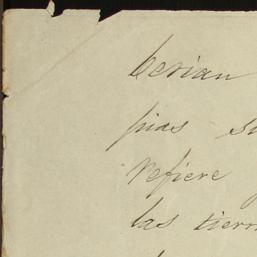 berian
pias su
refiere
las tierr